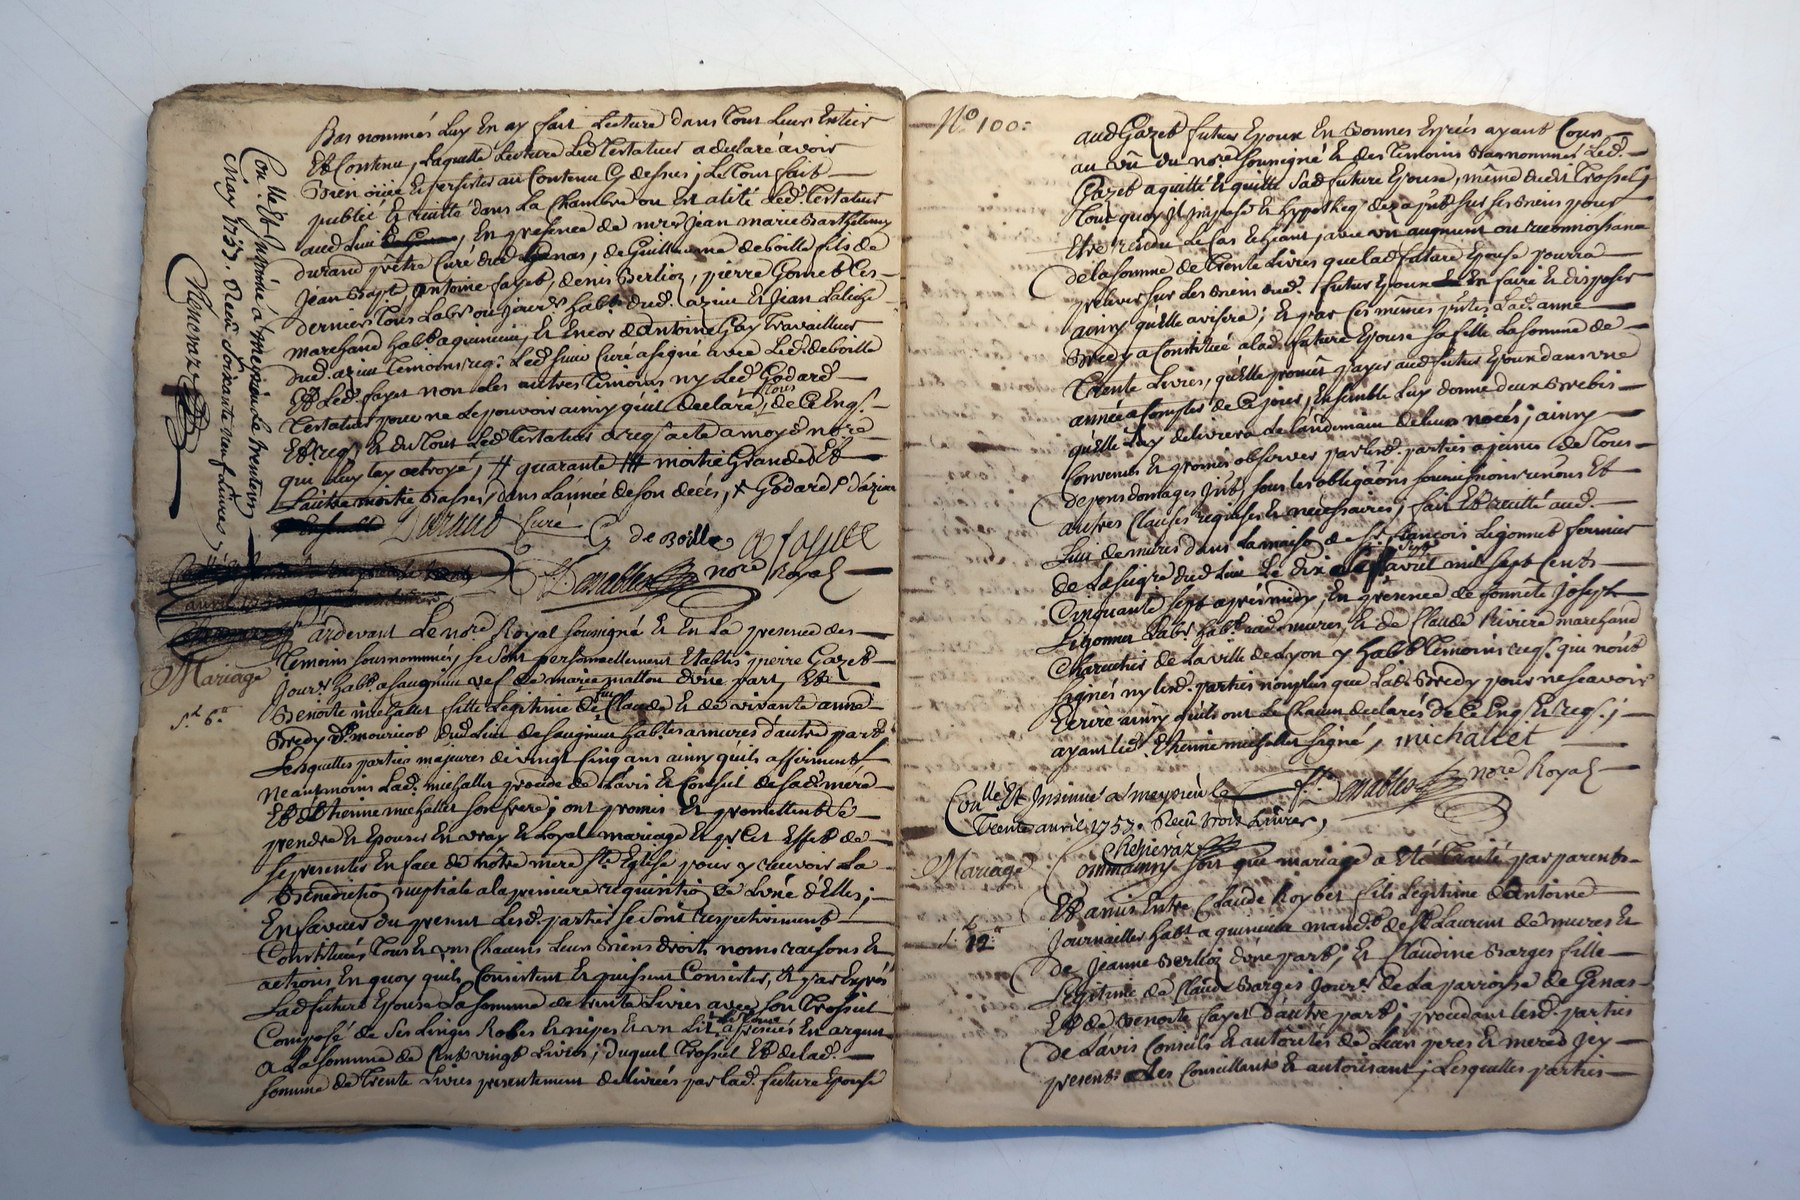 Bas nommés Luy En ay fait Lecture dans Tout Leur Entier
Et Contenu, Laquelle Lecture Led. Testateur a declaré avoir
Bien ouie Et persister au Contenu Cy dessus; Le Tout fait
publié Et recitté dans La Chambre ou Est alité Led. Testateur
aud. Lieu, En presence de mre Jean marie Barthelemy
durand prêtre Curé dud. Genas, de Guillaume deboille fils de
Jean Bapt. antoine fayet, denis Berlioz, pierre Gonet Les
derniers Tous Labrs ou jourrs habts dud. azieu Et Jean
marchand habt. a quincieu, Et Encor d'antoine Gay Travailleur
dud. azieu Temoins req. Led. Curé a signé avec Led. deboille
Et Led. fayet non Les autres Temoins ny Led. Godard
Testateur pour ne Le pouvoir ainsy qu'il declaré, de Ce Enq.
Et req. Et du Tout Led. Testateur a req. acte a moyd. nore
qui Luy ay octroyé, quarante moitie Grandes Et
L'autre moitie Basses, dans L'année de son decès, Godard d'azieu
Durand Curé G de Boille a fayet
Desnables nore Royal
Conllé Et Insinué a meyzieu Le trente
may 1757. Receu soixante neuf Livres
Reneraz
Mariage
sl. 6.s
Pardevant Le nore Royal soussigné Et En La presence des
temoins sousnommés, se sont personnellement Etablis pierre Gazet
jourr. habt. a saugnieu vef de marie mallon d'une part, Et
Benoite michallet fille Legitime de feu Claude Et de vivante anne
Bredy dud. Lieu de saugnieu habtes a mures d'autre part
Lesquelles parties majeures de vingt Cinq ans ainsy qu'ils affirment
neantmoins Lad. michallet procede de L'avis Et Conseil de sad. mere
Et d'Ethienne michallet son frere; ont promis Et promettent se
prendre Et Epouser En vray Et Loyal mariage Et pr Cet Effet de
se presenter En face de nôtre mere Ste Eglise pour y recevoir La
Benediction nuptiale a La premiere requisition de L'une d'Elles;
En faveur du present Lesd. parties se sont respectivement
Constituées Tous Et uns Chacuns Leurs Biens droits noms raisons Et
actions En quoy qu'ils Consistent Et puissent Consister, Et par Exprès
Lad. future Epouse La somme de trente Livres avec son Trossel
Composé de ses Linges Robes Et nipes Et un Lit apreciés En argent
a La somme de Cent vingt Livres; duquel Trossel Et de lad.
somme de Trente Livres presentement delivrées par Lad. future Epouse
No. 100.
aud. Gazet futur Epoux En Bonnes Especes ayant Cour
au vû du nore soussigné Et des Temoins Bas nommés Led.
Gazet a quitté Et quitte sad. future Epouse, même dud. Trossel
Tout quoy Il impose Et hypotheq. dez a pnt sur ses Biens pour
Etre rendu Le Cas Echeant, avec un augment ou reconnoissance
de la somme de trente Livres que Lad. future Epouse pourra
prelever sur Les Biens dud. futur Epoux Et En faire Et disposer
ainsy qu'Elle avisera; Et par Ces mêmes pntes Lad. anne
Bredy a Constitué a lad. future Epouse sa fille La somme de
Trente Livres, qu'Elle promet payer aud. futur Epoux dans une
année a Compter de Ce jour, Ensemble Luy donne deux Brebis
qu'Elle Luy delivrera Le Landemain de leurs noces; ainsy
Convenu Et promis observer par lesd. parties a peines de Tous
depens domages Intts sous Les obligâons soumissions renons Et
autres Clauses requises Et necessaires, fait Et recitté aud.
Lieu de mures dans La maison de Sr. françois Ligonnet fermier
de La seigrie dud. Lieu Le dix sept avril mil sept Cents
Cinquante sept après midy, En presence de honnete Joseph
Ligonnet Labr habt. aud. mures, Et de Claude Riviere marchand
Charcutier de La ville de Lyon y habt. Temoins req. qui n'ont
signés ny lesd. parties non plus que Lad. Bredy pour ne sçavoir
Ecrire ainsy qu'ils ont Le Chacun declarés de Ce Enq. Et req.;
ayant Led. Ethienne michallet signé, michallet
Desnables nore Royal
Conllé Et Insinué a meyzieu Le
Trente avril 1757. Receu trois Livres,
Reneraz
Mariage
sl. 12.s
Comme ainsy soit que mariage a Eté Traité par parents
Et amis Entre Claude Roybet fils Legitime d'antoine
Journaillier habt. a quincieu mandt. de St. Laurent de mures Et
de Jeanne Berlioz d'une part, Et Claudine Barges fille
Legitime de Claude Barges Jourr. de La parroisse de Genas
Et de Benoite fayet d'autre part, procedant lesd. parties
de L'avis Conseils Et autorités de Leurs peres Et meres Icy
presents Les Conseillant Et autorisant; Lesquelles parties